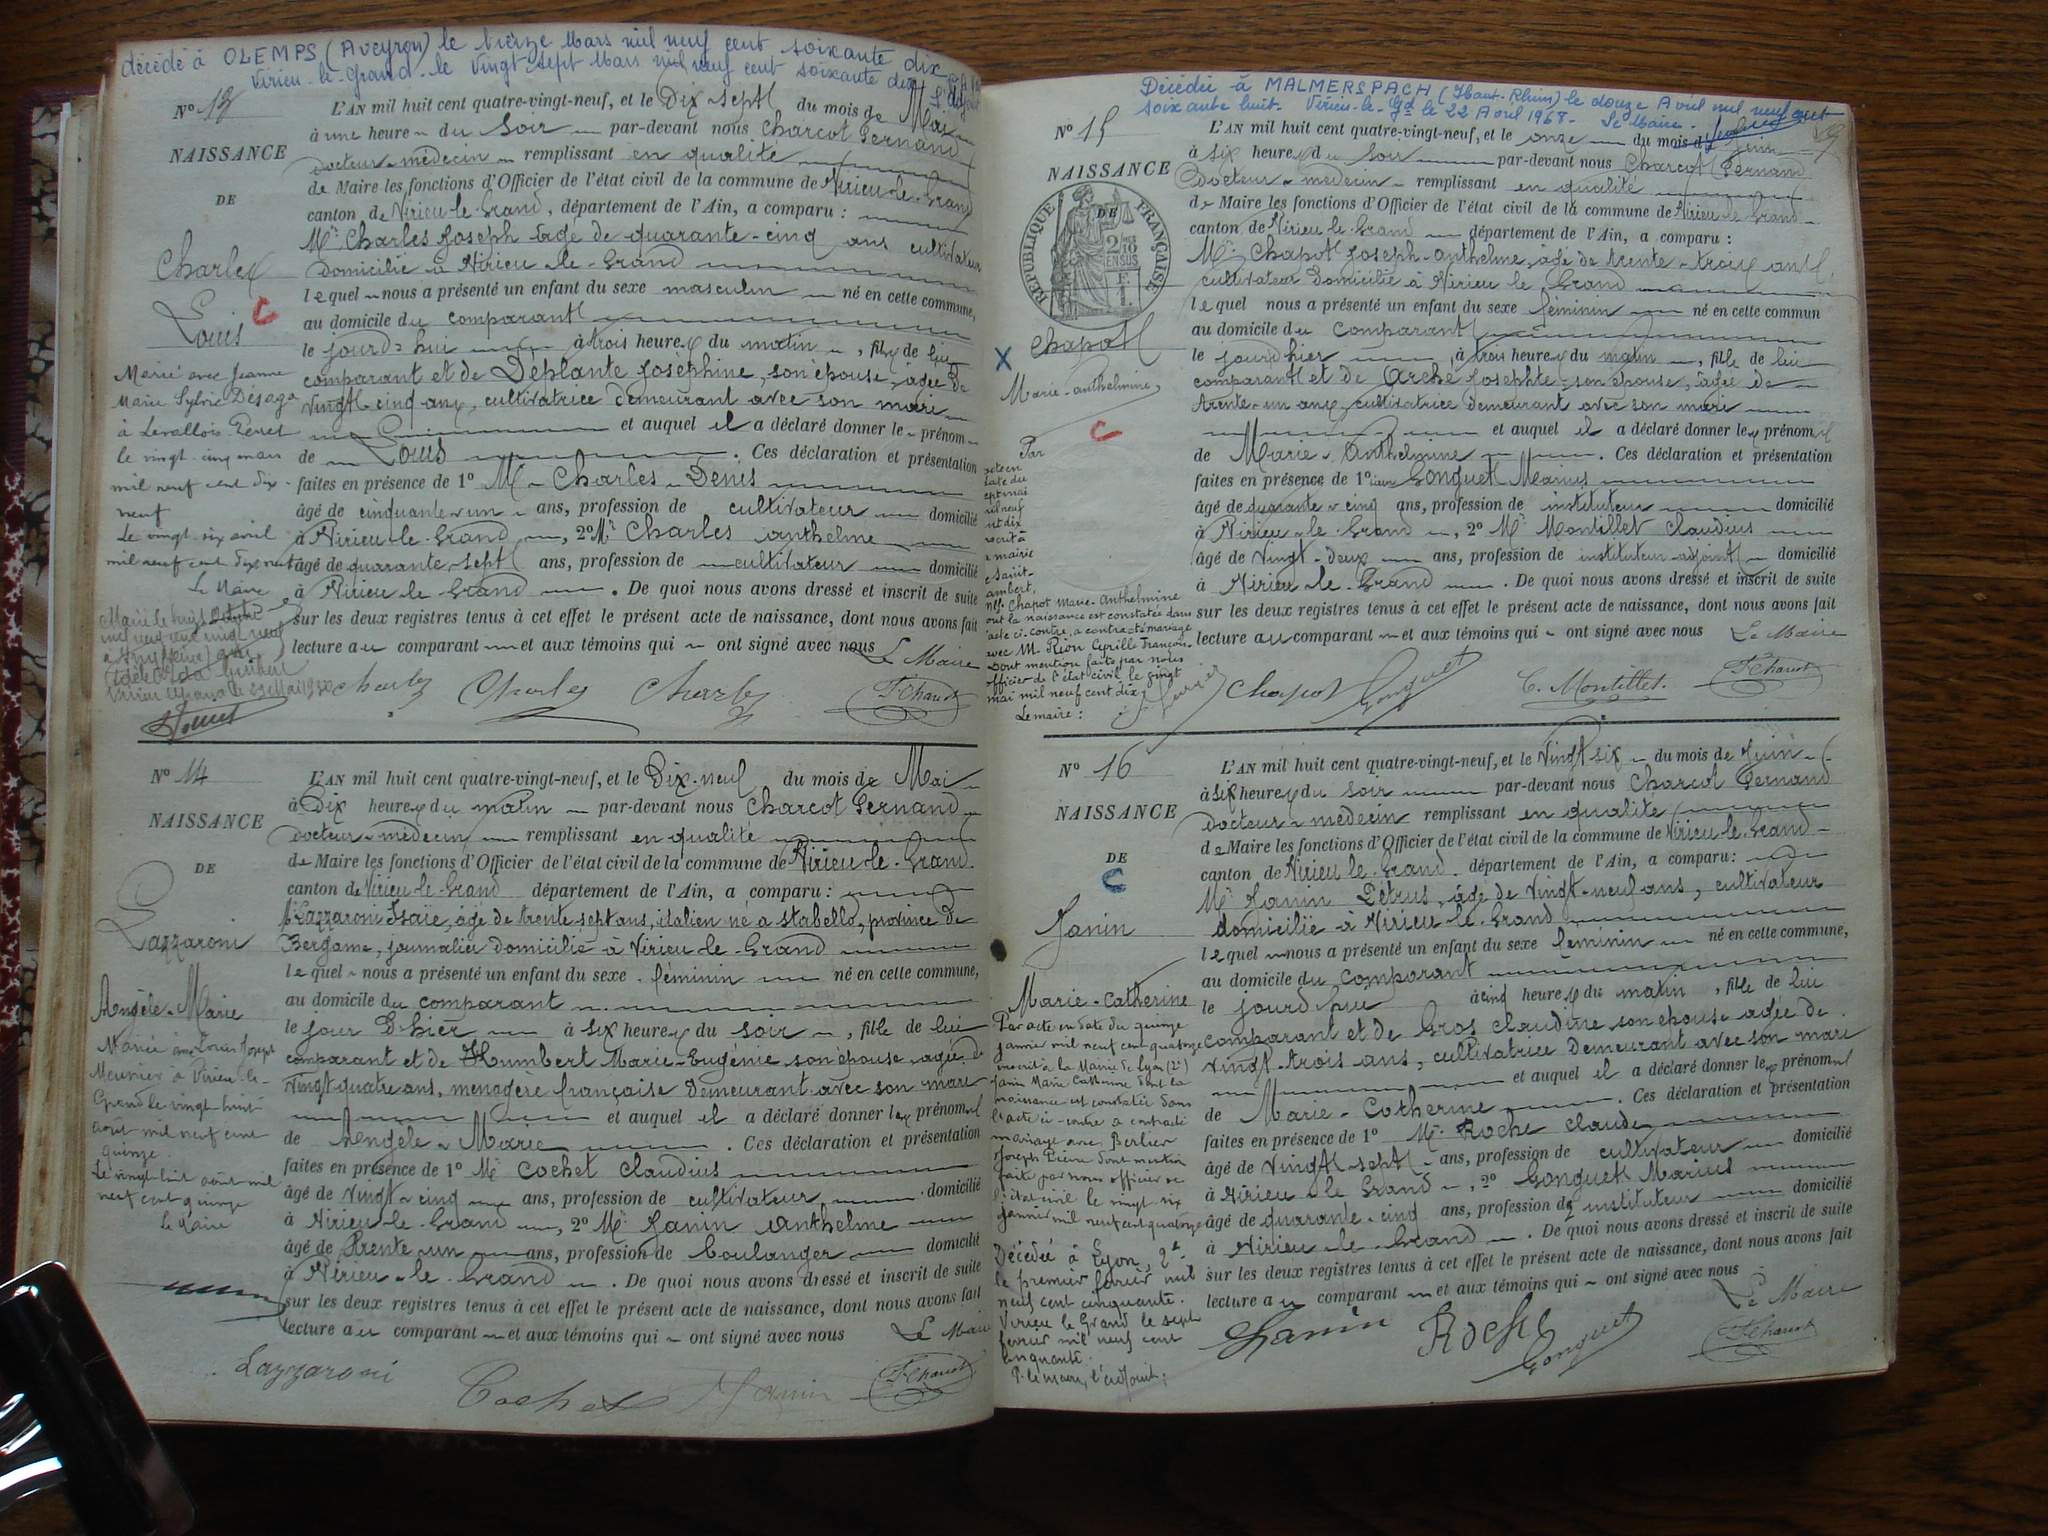 décédé à OLEMPS (Aveyron) le treize Mars mil neuf cent soixante dix
Virieu-le-Grand le Vingt sept Mars mil neuf cent soixante dix
N° 13
NAISSANCE
DE
Charles
Louis
C
Marié avec Jeanne
Marie Sylvie Désaga
à Levallois Perret
le vingt-cinq mars
mil neuf cent dix-
neuf
Le vingt-six avril
mil neuf cent dix neuf
Le Maire
L'AN mil huit cent quatre-vingt-neuf, et le Dix-sept du mois de Mai
à une heure du Soir par-devant nous Charcot Fernand
Docteur-médecin remplissant en qualité
de Maire les fonctions d'Officier de l'état civil de la commune de Virieu-le-Grand
canton de Virieu-le-Grand, département de l'Ain, a comparu :
Mr Charles Joseph âgé de quarante-cinq ans cultivateur
Domicilié à Virieu-le-Grand
lequel nous a présenté un enfant du sexe masculin né en cette commune,
au domicile du comparant
le jourd'hui à trois heures du matin, fils de lui
comparant et de Déplante Joséphine, son épouse, âgée de
Vingt-cinq ans, cultivatrice demeurant avec son mari
et auquel il a déclaré donner le prénom
de Louis. Ces déclaration et présentation
faites en présence de 1° Mr Charles Denis
âgé de cinquante-un ans, profession de cultivateur domicilié
à Virieu-le-Grand, 2° Mr Charles Anthelme
âgé de quarante-sept ans, profession de cultivateur domicilié
à Virieu-le-Grand. De quoi nous avons dressé et inscrit de suite
sur les deux registres tenus à cet effet le présent acte de naissance, dont nous avons fait
lecture au comparant et aux témoins qui ont signé avec nous Le Maire
Charles Charles Charles F. Charcot
N° 14
NAISSANCE
DE
Lazzaroni
Angèle-Marie
Mariée avec Louis Joseph
Meunier à Virieu-le-
Grand le vingt-huit
août mil neuf cent
quinze.
Le vingt-huit août mil
neuf cent quinze
Le Maire
L'AN mil huit cent quatre-vingt-neuf, et le Dix-neuf du mois de Mai
à Dix heures du matin par-devant nous Charcot Fernand
Docteur-médecin remplissant en qualité
de Maire les fonctions d'Officier de l'état civil de la commune de Virieu-le-Grand
canton de Virieu-le-Grand département de l'Ain, a comparu :
Mr Lazzaroni Isaïe, âgé de trente-sept ans, italien né à Stabello, province de
Bergame, journalier domicilié à Virieu-le-Grand
lequel nous a présenté un enfant du sexe féminin né en cette commune,
au domicile du comparant
le jour d'hier à six heures du soir, fille de lui
comparant et de Humbert Marie-Eugénie son épouse, agée de
Vingt quatre ans, menagère française demeurant avec son mari
et auquel il a déclaré donner les prénoms
de Angèle-Marie. Ces déclaration et présentation
faites en présence de 1° Mr Cochet Claudius
âgé de vingt-cinq ans, profession de cultivateur, domicilié
à Virieu-le-Grand, 2° Mr Janin Anthelme
âgé de Trente un ans, profession de boulanger domicilié
à Virieu-le-Grand. De quoi nous avons dressé et inscrit de suite
sur les deux registres tenus à cet effet le présent acte de naissance, dont nous avons fait
lecture au comparant et aux témoins qui ont signé avec nous Le Maire
Lazzaroni Cochet Janin F. Charcot
Décédée à MALMERSPACH (Haut-Rhin) le douze Avril mil neuf cent
soixante huit. Virieu-le-Gd le 22 Avril 1968. Le Maire.
N° 15
NAISSANCE
DE
RÉPUBLIQUE FRANÇAISE
X
Chapot
Marie-Anthelmine,
C
Par
Chapot Marie-Anthelmine
dont la naissance est constatée dans
l'acte ci-contre, a contracté mariage
avec M. Rion Cyrille François.
Dont mention faite par nous
officier de l'état civil le vingt
mai mil neuf cent dix
Le maire :
L'AN mil huit cent quatre-vingt-neuf, et le onze du mois de Juin
à six heures du soir par-devant nous Charcot Fernand
Docteur-médecin remplissant en qualité
de Maire les fonctions d'Officier de l'état civil de la commune de Virieu-le-Grand
canton de Virieu-le-Grand département de l'Ain, a comparu :
Mr Chapot Joseph-Anthelme, âgé de trente-trois ans,
cultivateur Domicilié à Virieu le Grand
lequel nous a présenté un enfant du sexe féminin né en cette commun
au domicile du comparant
le jourd'hier, à trois heures du matin, fille de lui
comparant et de Arche Josephte son épouse, âgée de
trente-un ans, cultivatrice demeurant avec son mari
et auquel il a déclaré donner les prénoms
de Marie-Anthelmine. Ces déclaration et présentation
faites en présence de 1° Gonguet Marius
âgé de quarante-cinq ans, profession de instituteur domicilié
à Virieu-le-Grand, 2° Mr Montillet Claudius
âgé de Vingt-deux ans, profession de instituteur-adjoint domicilié
à Virieu-le-Grand. De quoi nous avons dressé et inscrit de suite
sur les deux registres tenus à cet effet le présent acte de naissance, dont nous avons fait
lecture au comparant et aux témoins qui ont signé avec nous Le Maire
Chapot Gonguet C. Montillet F. Charcot
N° 16
NAISSANCE
DE
C
Janin
Marie-Catherine
Par acte en date du quinze
janvier mil neuf cent quatorze
inscrit à la Mairie de Lyon (2e)
Janin Marie Catherine dont la
naissance est constatée dans
l'acte ci-contre a contracté
mariage avec Berlier
Joseph Pierre dont mention
faite par nous officier de
l'état civil le vingt six
janvier mil neuf cent quatorze
Décédée à Lyon, 2e
le premier février mil
neuf cent cinquante.
Virieu le Grand le sept
février mil neuf cent
cinquante.
P. le maire, l'adjoint,
L'AN mil huit cent quatre-vingt-neuf, et le Vingt six du mois de Juin
à six heures du soir par-devant nous Charcot Fernand
Docteur-médecin remplissant en qualité
de Maire les fonctions d'Officier de l'état civil de la commune de Virieu-le-Grand
canton de Virieu le Grand département de l'Ain, a comparu :
Mr Janin Pétrus, âgé de vingt-neuf ans, cultivateur
domicilié à Virieu-le-Grand
lequel nous a présenté un enfant du sexe féminin né en cette commune,
au domicile du comparant
le jourd'hui à cinq heures du matin, fille de lui
comparant et de Gros Claudine, son épouse agée de
vingt-trois ans, cultivatrice demeurant avec son mari
et auquel il a déclaré donner les prénoms
de Marie-Catherine. Ces déclaration et présentation
faites en présence de 1° Mr Roche Claude
âgé de Vingt sept ans, profession de cultivateur domicilié
à Virieu-le-Grand, 2° Gonguet Marius
âgé de quarante-cinq ans, profession d'instituteur domicilié
à Virieu-le-Grand. De quoi nous avons dressé et inscrit de suite
sur les deux registres tenus à cet effet le présent acte de naissance, dont nous avons fait
lecture au comparant et aux témoins qui ont signé avec nous Le Maire
Janin Roche Gonguet F. Charcot